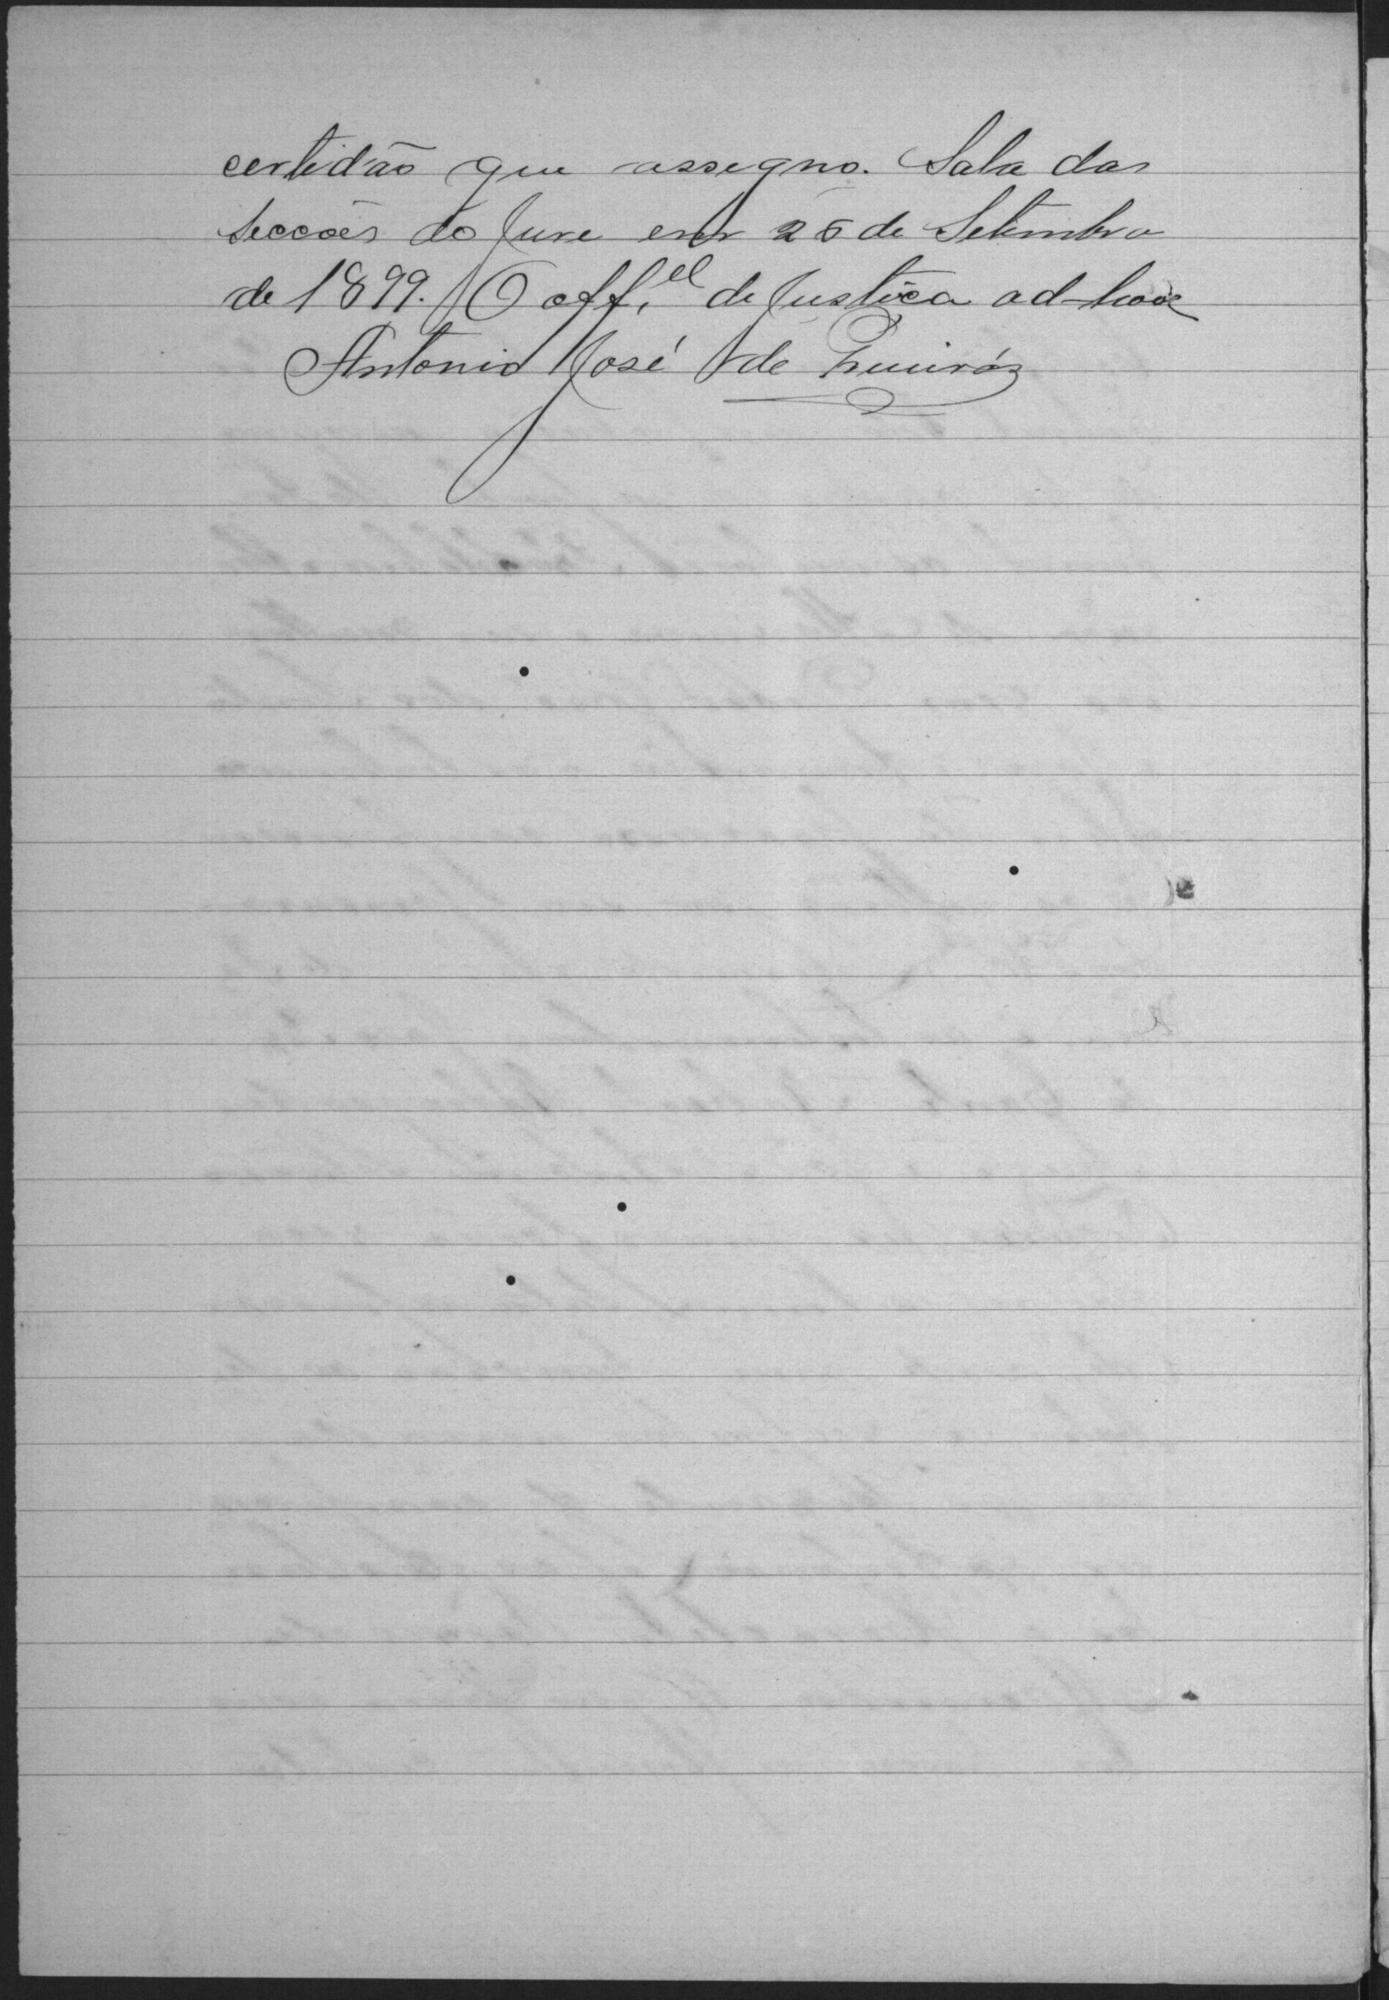 certidão que assegno. Sala das
Secções do Jure em 25 de Setembro
de 1899. O off.el de Justiça ad-hoc
Antonio José de Queiróz